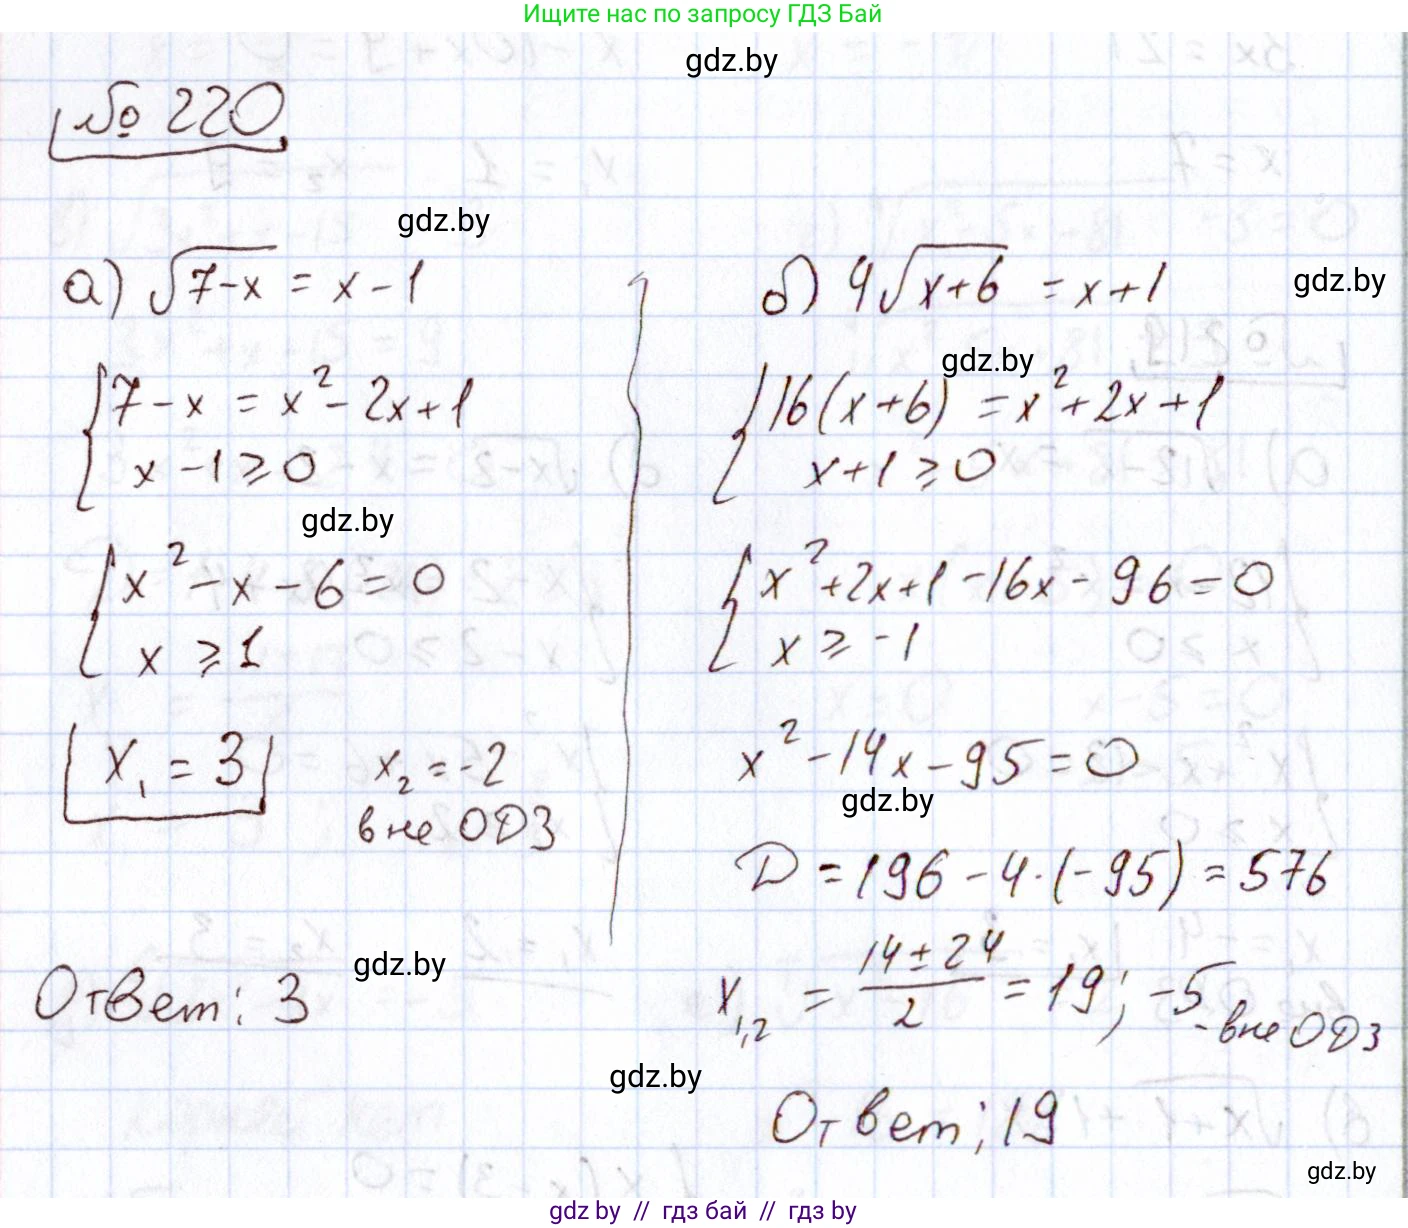 Ищите нас по запросу ГДЗ Бай
gdz.by
№ 220
gdz.by
а) √(7-x) = x - 1
{ 7 - x = x² - 2x + 1
x - 1 ≥ 0
gdz.by
{ x² - x - 6 = 0
x ≥ 1
x₁ = 3 x₂ = -2
вне ОДЗ
gdz.by
Ответ: 3
gdz.by
б) 4√(x+6) = x + 1
gdz.by
gdz.by
{ 16(x+6) = x² + 2x + 1
x + 1 ≥ 0
{ x² + 2x + 1 - 16x - 96 = 0
x ≥ -1
x² - 14x - 95 = 0
gdz.by
D = 196 - 4·(-95) = 576
x₁,₂ = (14 ± 24)/2 = 19; -5 - вне ОДЗ
Ответ: 19
gdz.by
gdz by // гдз бай // гдз by